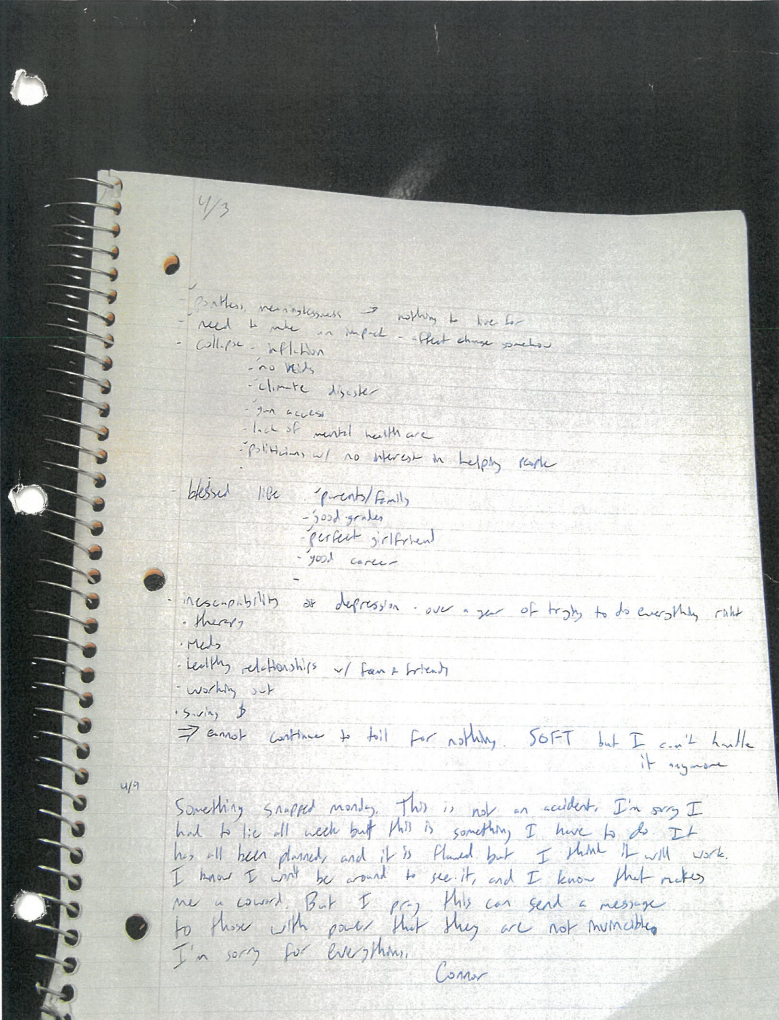 4/3
- Pointless, meaninglessness → nothing to live for
- need to make an impact - affect change somehow
- collapse - inflation
- no kids
- climate disaster
- gun access
- lack of mental healthcare
- politicians w/ no interest in helping people
- blessed life - parents/family
- good grades
- perfect girlfriend
- good career
-
- inescapability of depression - over a year of trying to do everything right
- therapy
- Meds
- healthy relationships w/ fam + friends
- working out
- saving $
⇒ cannot continue to toil for nothing. SOFT but I can't handle
it anymore
4/9
Something snapped monday. This is not an accident. I'm sorry I
had to lie all week but this is something I have to do. It
has all been planned, and it is flawed but I think it will work.
I know I won't be around to see it, and I know that makes
me a coward. But I pray this can send a message
to those with power that they are not invincible.
I'm sorry for everything.
Connor